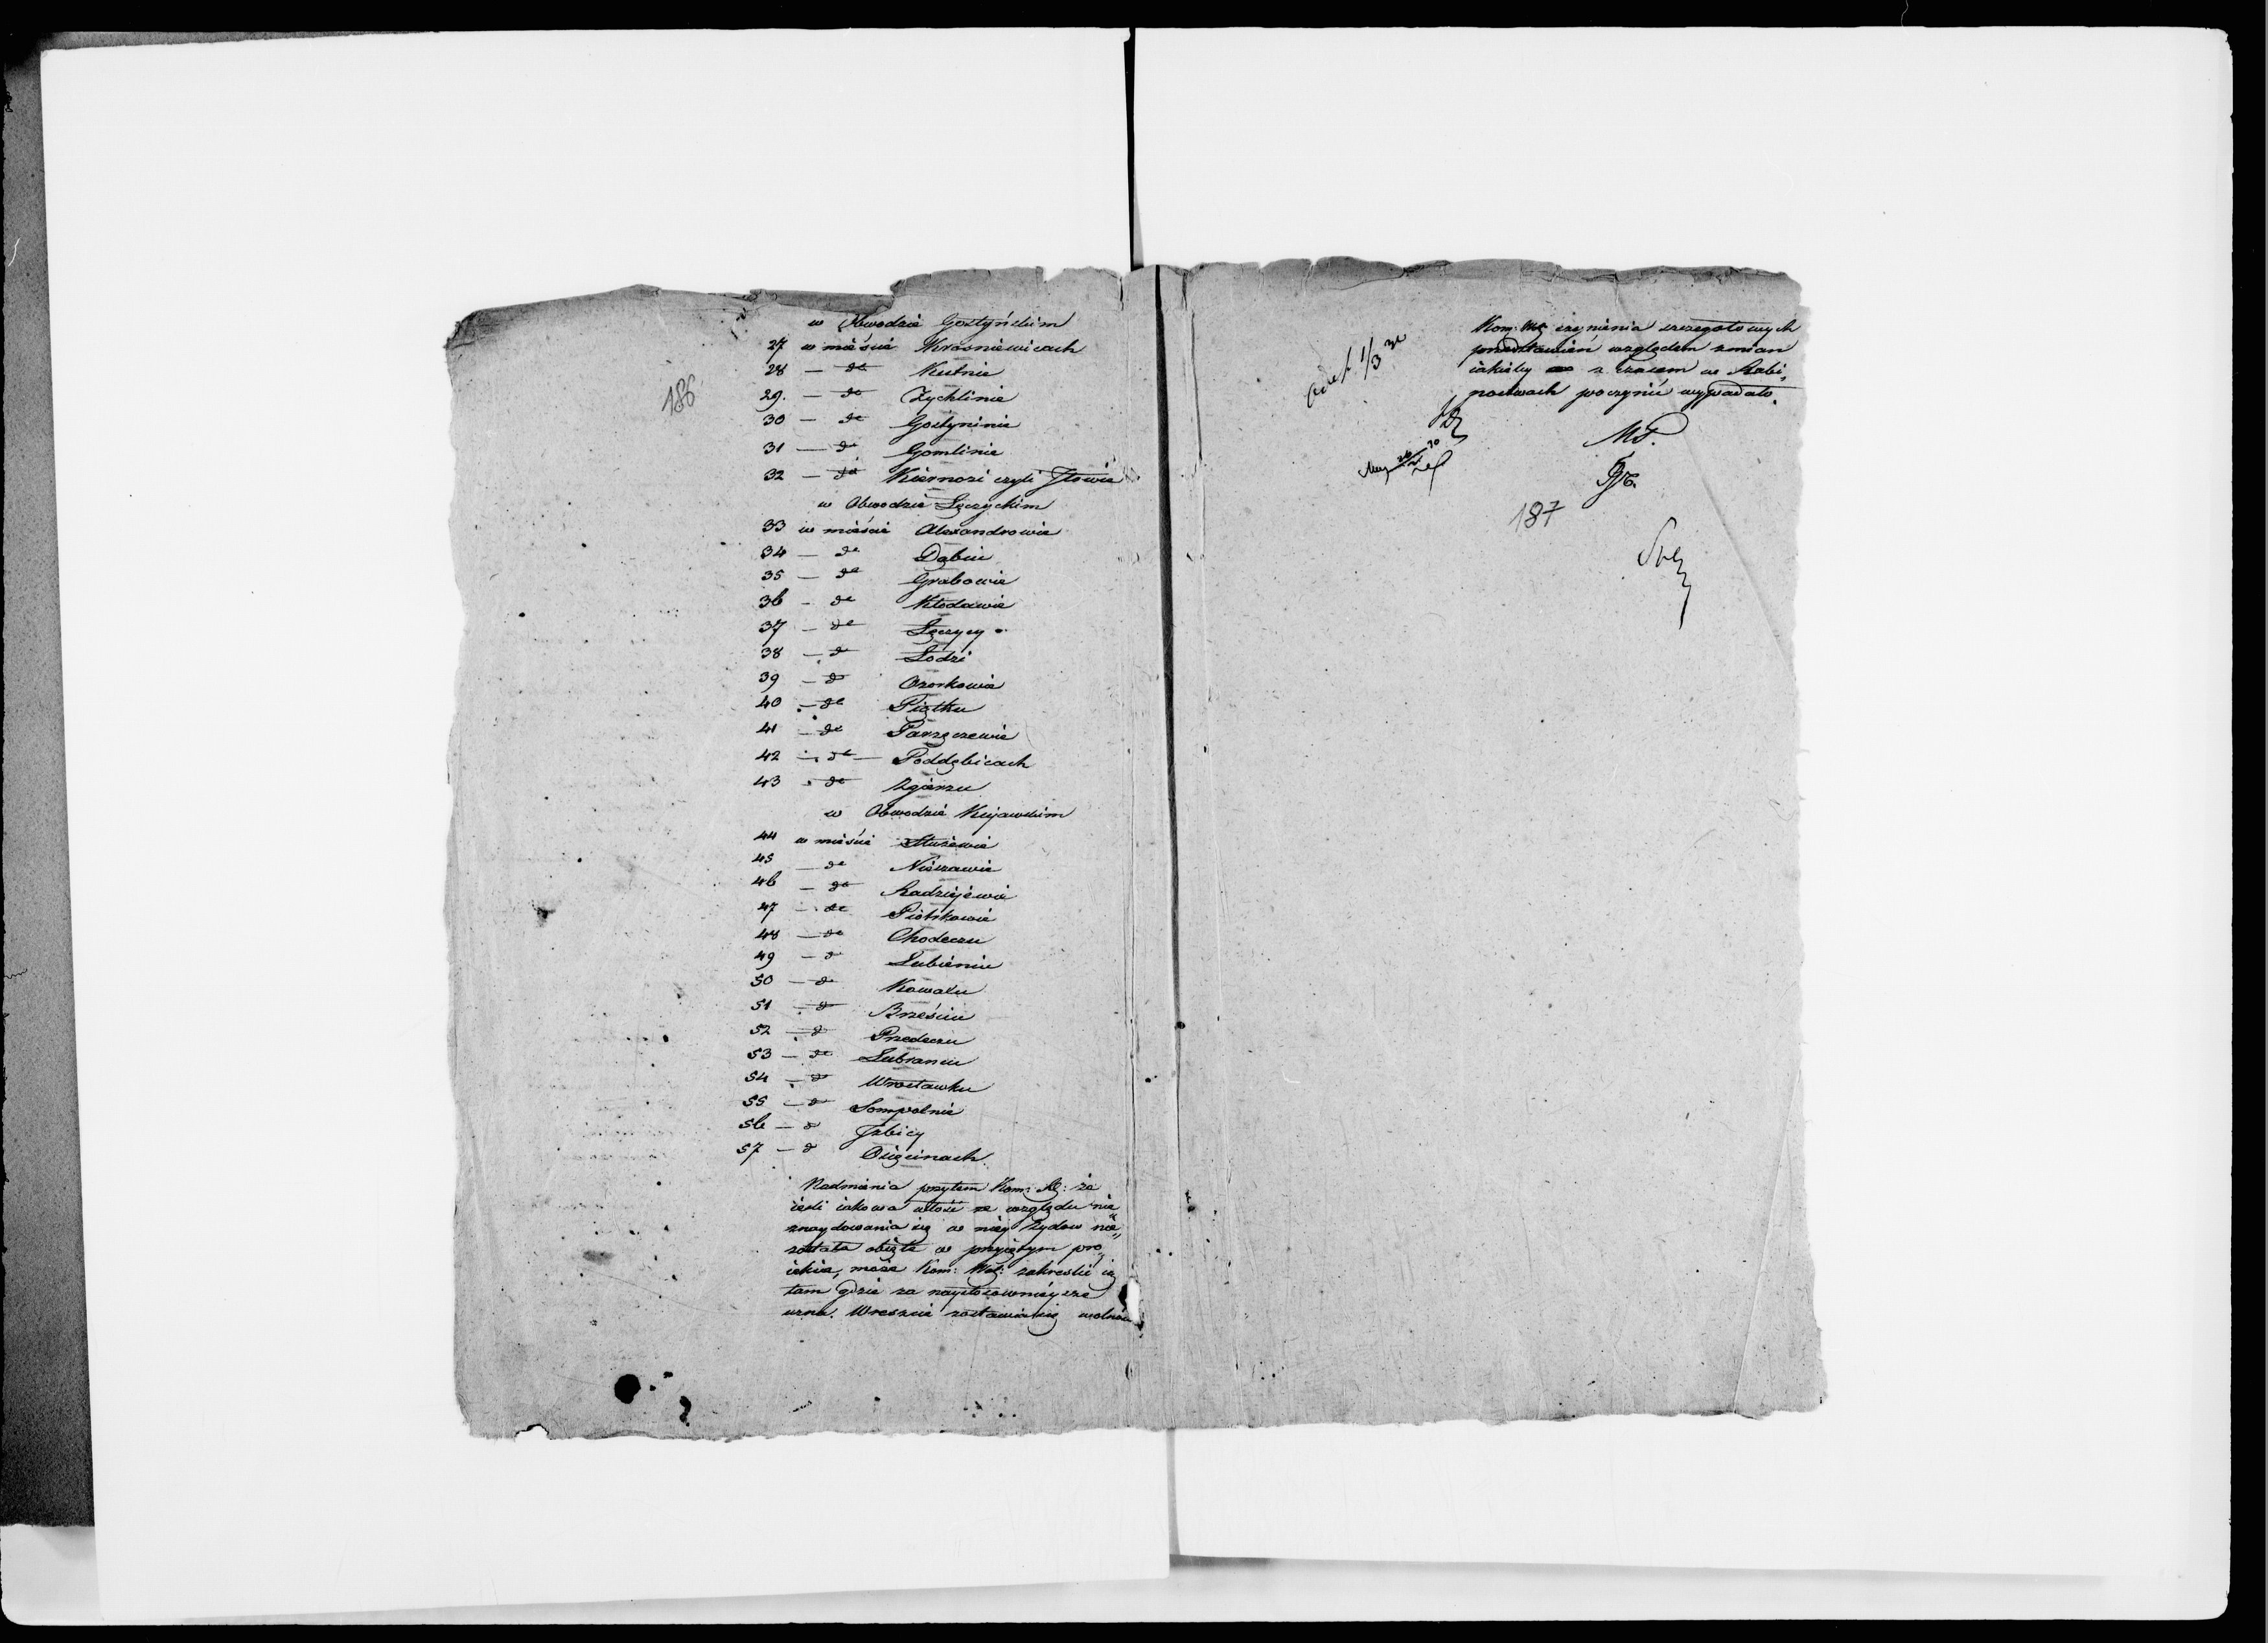 186
w Obwodzie Gostyńskim
27 w mieście Krosniewicach
28 — do Kutnie
29. — do Zychlinie
30 — do Gostyninie
31 — do Gombinie
32 — do Kiernozi czyli Iłowie
w Obwodzie Łęczyckim
33 w mieście Alexandrowie
34 — do Dąbiu
35 — do Grabowie
36 - do Kłodawie
37 — do Łęczycy
38 — do Łodzi
39 — do Ozorkowie
40 — do Piątku
41 — do Parzęczewie
42 — do — Poddębicach
43 — do Zgierzu
w Obwodzie Kujawskim
44 w mieście Służewie
45 — do Nieszawie
46 — do Radziejewie
47 — do Piotrkowie
48 — do Chodeczu
49 — do Lubieniu
50 — do Kowalu
51 — do Brześciu
52 — do Przedeczu
53 — do Lubraniu
54 — do Wrocławku
55 — do Sompolnie
56 — do Izbicy
57 — do Osięcinach
Nadmienia przytem Kom: Rz: że
ieśli iakowa włość ze względu nie
znaydowania się w niey Żydow nie„
została obięta w przyiętym pro„
iekcie, może Kom: Wdz: zakreslić ią
tam gdzie za naystosownieysze
uzna. Wreszcie zostawia się wolność
Kom: Wdz czynienia szczegołowych
przedstawień względem zmian
iakieby z czasem w Rabi„
nostwach poczynić wypadało.
MP.
187